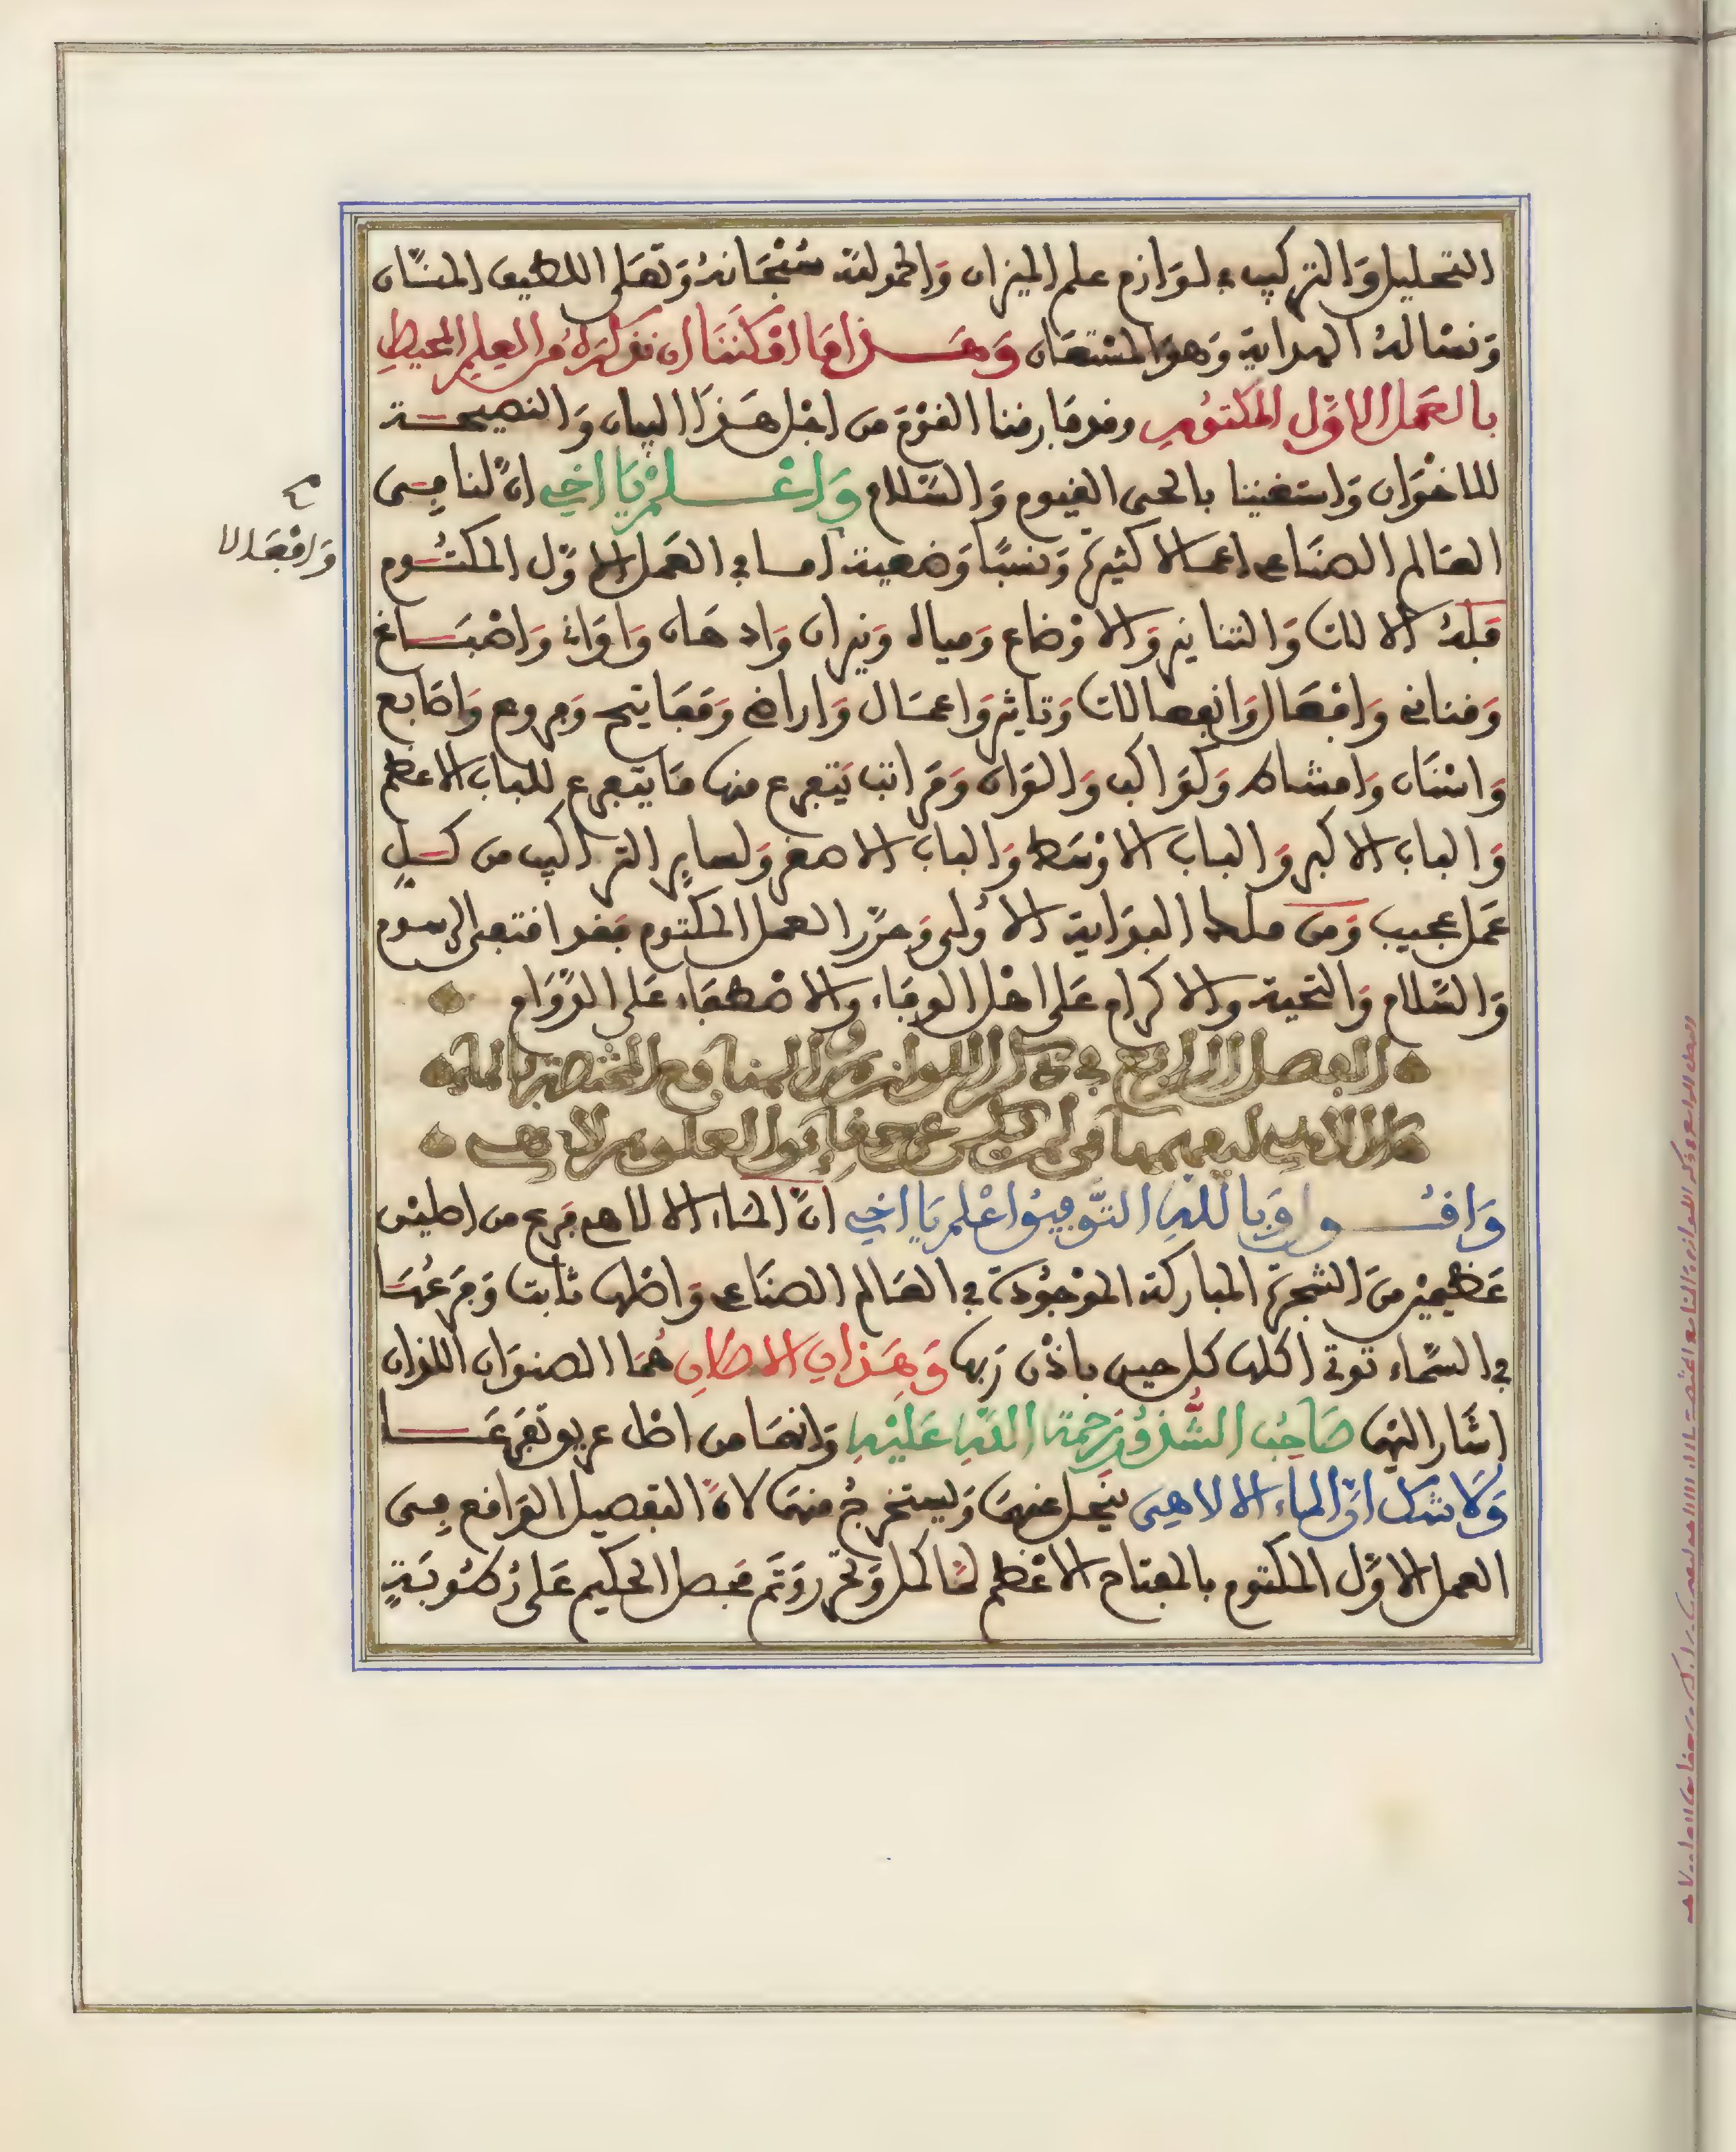 التحليل والتركيب في لوازم علم الميزان والحمد لله سبحانه وتعلى اللطيف المنان
ونساله الهداية وهو المستعان وهذا ما امكننا ان نذكره من العلم المحيط
بالعمل الاول المكتوم وقد فارقنا القوم من اجل هذا البيان والنصيحة
للاخوان واستغنينا بالحي القيوم والسلام واعلم يا اخي ان لنا في
العالم الصناعي اعمالا كثيرة ونسبا وضعية اما في العمل الاول المكتوم
فله الالات والتنانير والاوضاع ومياه ونيران وادهان واوان واصباغ
وقناني وافعال وانفعالات وتاثير واعمال واراضي ومفاتيح وفروع واصابع
واسنان وامشاط وكواكب والوان ومراتب يتفرع منها ما يتفرع للباب الاعظم
والباب الاكبر والباب الاوسط والباب الاصغر ولساير التراكيب من كل
عمل عجيب ومن ملك البداية الاولى وحرر العمل المكتوم فقد اقتفى الرسوم
والسلام والتحية والاكرام على اهل الوفاء والاصطفاء على الدوام
الفصل الرابع في ذكر اللوازم والمنافع المختصة بالماء
الالاهي ليفهمها من لم يكن عرف حقايق العلوم الالاهية
واقول وبالله التوفيق اعلم يا اخي ان الماء الالاهي فرع من اصلين
عظيمين من الشجرة المباركة الموجودة في العالم الصناعي واصلها ثابت وفرعها
في السماء توتي اكلها كل حين باذن ربها وهذان الاصلان هما الصنوان اللذان
اشار اليهما صاحب الشذور رحمة الله عليه وانهما من اصل عريق تفرعا
ولا شك ان الماء الالاهي ينحل عنهما ويستخرج منهما لان التفصيل الواقع في
العمل الاول المكتوم بالمفتاح الاعظم لما كمل وتحرر وتم فصل الحكيم على رطوبة
وافعالا